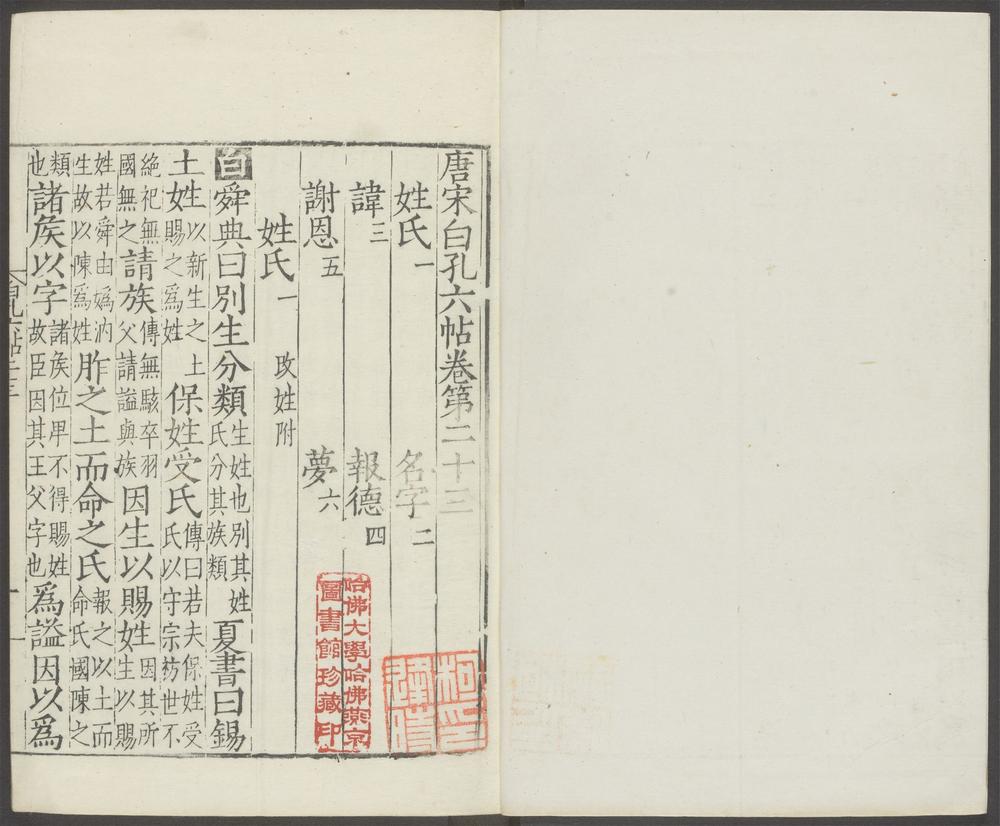 唐宋白孔六帖卷第二十三
姓氏一 名字二
諱三 報德四
謝恩五 夢六
姓氏一 改姓附
白舜典曰別生分類生姓也別其姓氏分其族類夏書曰錫
土姓以新生之土賜之爲姓保姓受氏傳曰若夫保姓受氏以守宗祊世不
絶祀無國無之請族傳無駭卒羽父請謚與族因生以賜姓因其所生以賜
姓若舜由嬀汭生故以陳爲姓胙之土而命之氏報之以土而命氏國陳之
類也諸矦以字諸矦位卑不得賜姓故臣因其王父字也爲謚因以爲
哈佛大學哈佛燕京
圖書館珍藏印